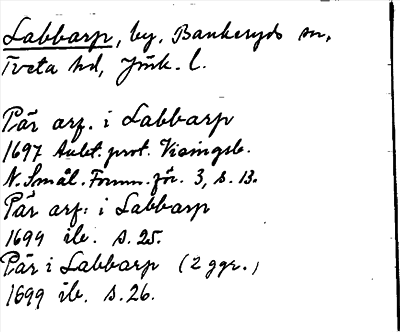 Labbarp, by. Bankeryds sn,
Tveta hd, Jönk. l.
Pär arf. i Labbarp
1697 Aukt. prot. Visingsb.
N. Smål. Fornm. för. 3, s. 13.
Pär arf: i Labbarp
1694 ib. s. 25.
Pär i Labbarp (2 ggr.)
1699 ib. s. 26.